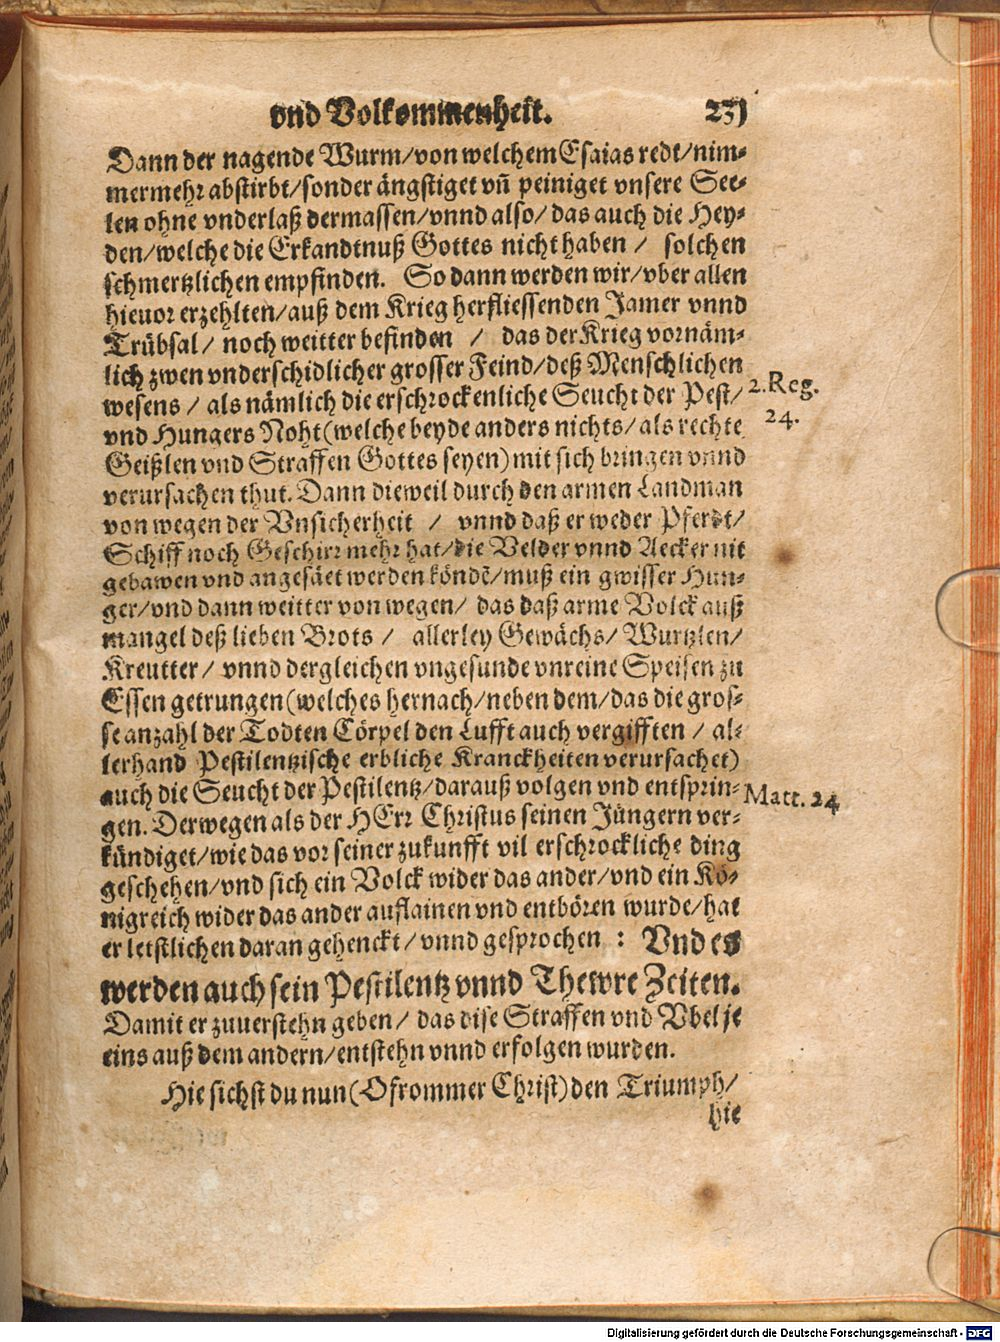 vnd Volkommenheit. 231
Dann der nagende Wurm/von welchem Esaias redt/nim-
mermehr abstirbt/sonder ängstiget vñ peiniget vnsere See-
len ohne vnderlaß dermassen/vnnd also/das auch die Hey-
den/welche die Erkandtnuß Gottes nicht haben / solchen
schmertzlichen empfinden. So dann werden wir/vber allen
hieuor erzehlten/auß dem Krieg herfliessenden Jamer vnnd
Trübsal/ noch weitter befinden / das der Krieg vornäm-
lich zwen vnderschidlicher grosser Feind/deß Menschlichen
wesens / als nämlich die erschrockenliche Seucht der Pest/ 2.Reg.
vnd Hungers Noht(welche beyde anders nichts/als rechte 24.
Geißlen vnd Straffen Gottes seyen)mit sich bringen vnnd
verursachen thut. Dann dieweil durch den armen Landman
von wegen der Vnsicherheit / vnnd daß er weder Pferdt/
Schiff noch Geschirr mehr hat/die Velder vnnd Aecker nit
gebawen vnd angesäet werden köndẽ/muß ein gwisser Hun-
ger/vnd dann weitter von wegen/ das daß arme Volck auß
mangel deß lieben Brots / allerley Gewächs/ Wurtzlen/
Kreutter/ vnnd dergleichen vngesunde vnreine Speisen zu
Essen getrungen(welches hernach/neben dem/das die gros-
se anzahl der Todten Cörpel den Lufft auch vergifften / al-
lerhand Pestilentzische erbliche Kranckheiten verursachet)
auch die Seucht der Pestilentz/darauß volgen vnd entsprin- Matt. 24
gen. Derwegen als der HErr Christus seinen Jüngern ver-
kündiget/wie das vor seiner zukunfft vil erschrockliche ding
geschehen/vnd sich ein Volck wider das ander/vnd ein Kö-
nigreich wider das ander auflainen vnd entbören wurde/hat
er letstlichen daran gehenckt/vnnd gesprochen : Vnd es
werden auch sein Pestilentz vnnd Thewre Zeiten.
Damit er zuuerstehn geben/ das dise Straffen vnd Vbel je
eins auß dem andern/entstehn vnnd erfolgen wurden.
Hie sichst du nun(O frommer Christ)den Triumph/
hie
Digitalisierung gefördert durch die Deutsche Forschungsgemeinschaft - DFG